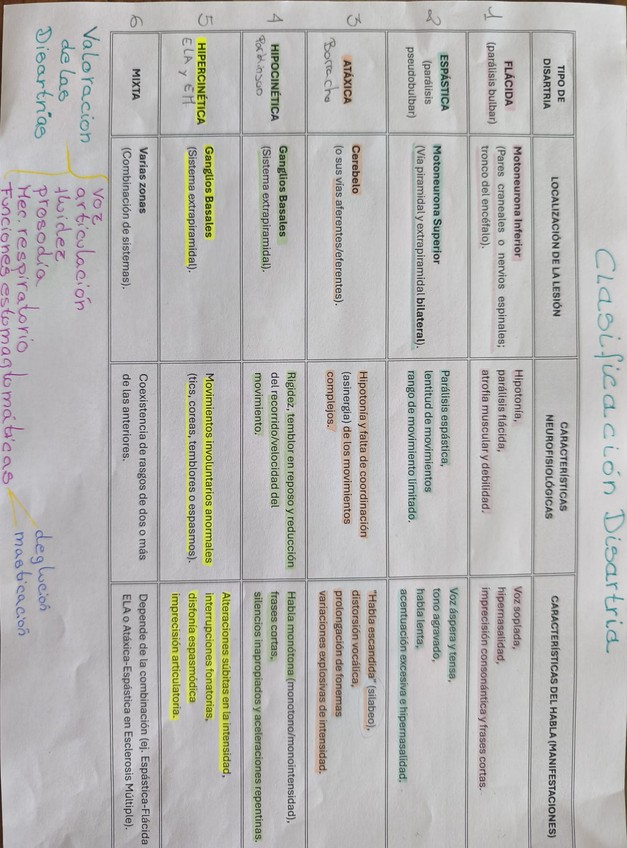 Clasificación Disartria
TIPO DE
DISARTRIA
LOCALIZACIÓN DE LA LESIÓN
CARACTERÍSTICAS
NEUROFISIOLÓGICAS
CARACTERÍSTICAS DEL HABLA (MANIFESTACIONES)
1
FLÁCIDA
(parálisis bulbar)
Motoneurona Inferior
(Pares craneales o nervios espinales;
tronco del encéfalo).
Hipotonía,
parálisis flácida,
atrofia muscular y debilidad.
Voz soplada,
hipernasalidad,
imprecisión consonántica y frases cortas.
2
ESPÁSTICA
(parálisis
pseudobulbar)
Motoneurona Superior
(Vía piramidal y extrapiramidal bilateral).
Parálisis espástica,
lentitud de movimientos
rango de movimiento limitado.
Voz áspera y tensa,
tono agravado,
habla lenta,
acentuación excesiva e hipernasalidad.
3
ATÁXICA
Borracho
Cerebelo
(o sus vías aferentes/eferentes).
Hipotonía y falta de coordinación
(asinergia) de los movimientos
complejos.
"Habla escandida" (silabeo),
distorsión vocálica,
prolongación de fonemas
variaciones explosivas de intensidad.
4
HIPOCINÉTICA
Parkinson
Ganglios Basales
(Sistema extrapiramidal).
Rigidez, temblor en reposo y reducción
del recorrido/velocidad del
movimiento.
Habla monótona (monotono/monointensidad),
frases cortas,
silencios inapropiados y aceleraciones repentinas.
5
HIPERCINÉTICA
ELA y EM
Ganglios Basales
(Sistema extrapiramidal).
Movimientos involuntarios anormales
(tics, coreas, temblores o espasmos).
Alteraciones súbitas en la intensidad,
interrupciones fonatorias,
distonía espasmódica
imprecisión articulatoria.
6
MIXTA
Varias zonas
(Combinación de sistemas).
Coexistencia de rasgos de dos o más
de las anteriores.
Depende de la combinación (ej. Espástica-Flácida
ELA o Atáxica-Espástica en Esclerosis Múltiple).
Valoración
de las
Disartrias
voz
articulación
fluidez
prosodia
Mec. respiratorio
Funciones estomaglomáticas
deglución
masticación